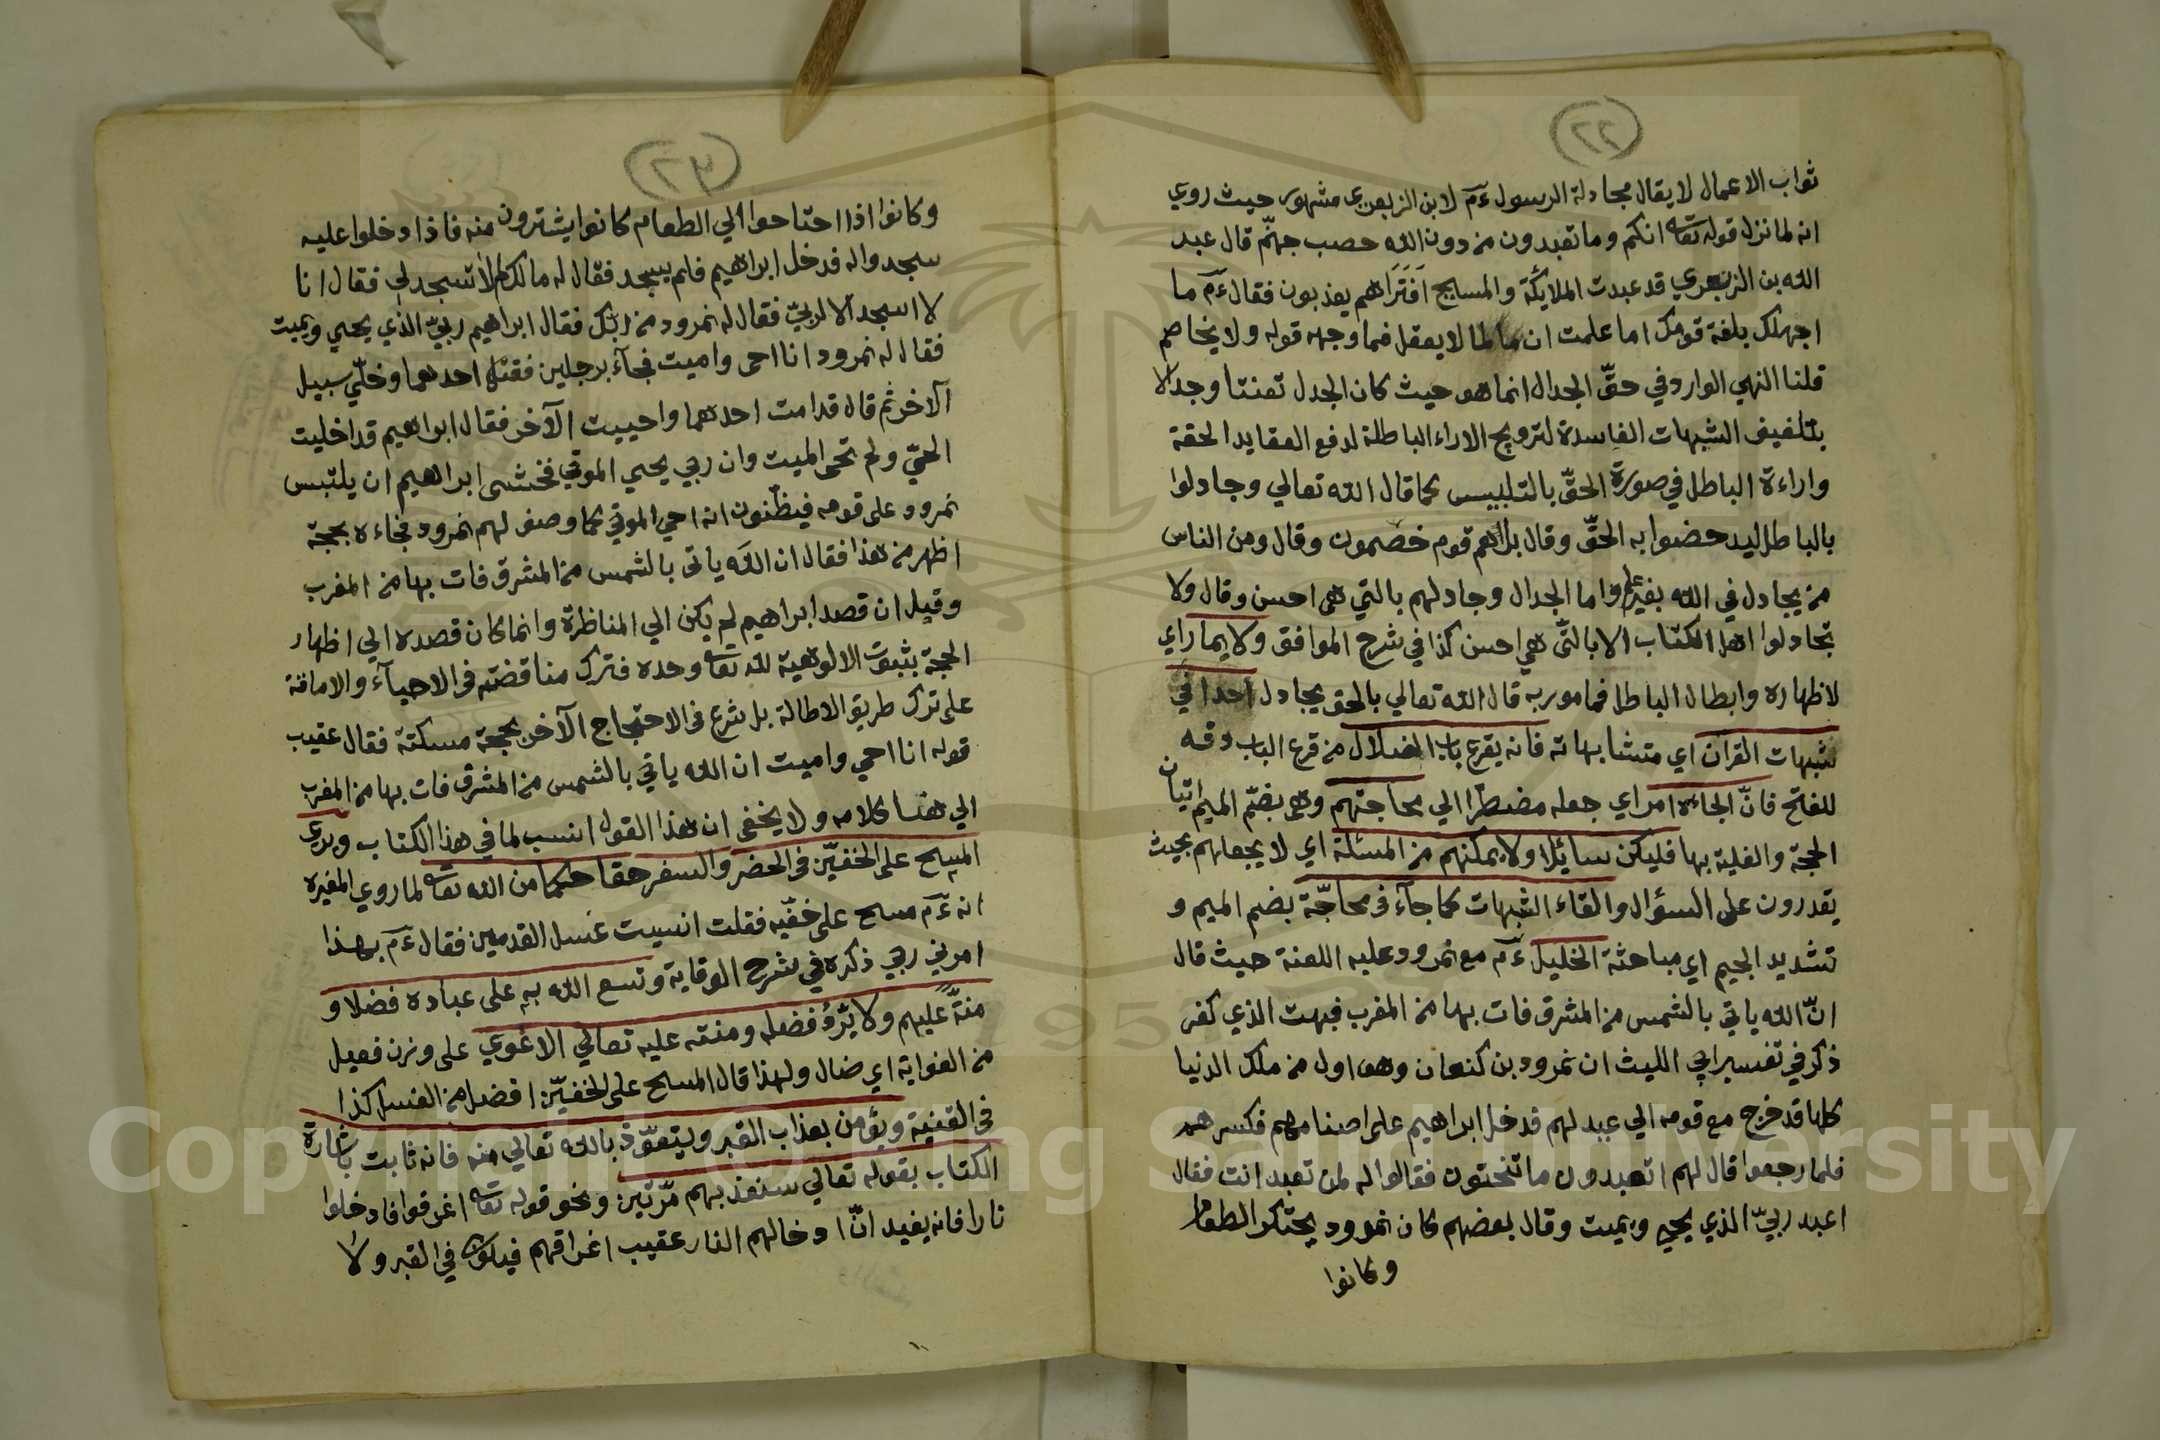 (٢٢)
ثواب الاعمال لا يقال مجادلة الرسول عم لابن الزبعري مشهور حيث روي
انه لما نزل قوله تعا انكم وما تعبدون من دون الله حصب جهنّم قال عبد
الله بن الزبعري قد عبدت الملايكة والمسيح اَفَتَرَاهم يعذبون فقال عم ما
اجهلك بلغة قومك اما علمت ان ما لما لا يعقل فما وجه قوله ولا يخاصم
قلنا النهي الوارد في حقّ الجدال انما هو حيث كان الجدل تعنتا وجدالا
بتلفيف الشبهات الفاسدة لترويج الاراء الباطلة لدفع العقايد الحقة
واراءة الباطل في صورة الحقّ بالتلبيس كما قال الله تعالي وجادلوا
بالباطل ليدحضوا به الحقّ وقال بل هم قوم خصمون وقال ومن الناس
من يجادل في الله بغير علم واما الجدال وجادلهم بالتي هى احسن وقال ولا
تجادلوا اهل الكتاب الا بالتّي هي احسن كذا في شرح المواقف ولا يماراي
لاظهاره وابطال الباطل فمامور به قال الله تعالي بالحق يجادل احدا في
شبهات القران اي متشابهاته فانه يقرع باب الضلال من قرع الباب دقه
للفاتح فانّ الجاءه امر اي جعله مضطرّا الي محاجتهم وهى بضمّ الميم اتيان
الحجة والغلبة بها فليكن سائلا ولا يمكنهم من المسئلة اي لا يجعلهم بحيث
يقدرون على السؤال والقاء الشبهات كما جآء فى محاجّة بضم الميم و
تشديد الجيم اي مباحثة الخليل عم مع نمرود عليه اللعنة حيث قال
انّ الله ياتي بالشمس من المشرق فات بها من المغرب فبهت الذي كفر
ذكر في تفسير ابي الليث ان نمرود بن كنعان وهو اول من ملك الدنيا
كلها قد خرج مع قومه الي عيد لهم فدخل ابراهيم على اصنامهم فكسرهم
فلما رجعوا قال لهم اتعبدون ما تنحتون فقالوا له لمن تعبد انت فقال
اعبد ربيّ الذي يحيي ويميت وقال بعضهم كان نمرود يحتكر الطعام
وكانوا
(٢٣)
وكانوا اذا احتاجوا الي الطعام كانوا يشترون منه فاذا دخلوا عليه
سجدوا له فدخل ابراهيم فلم يسجد فقال له مالك لم لا تسجد لي فقال انا
لا اسجد الا لربيّ فقال له نمرود من ربّك فقال ابراهيم ربيّ الذي يحيي ويميت
فقال له نمرود انا احى واميت فجآء برجلين فقتل احدهما وخلّي سبيل
الآخر ثم قال قد امت احدهما واحييت الآخر فقال ابراهيم قد اخليت
الحيّ ولم تحى الميت وان ربي يحيي الموتي فخشى ابراهيم ان يلتبس
نمرود على قومه فيظنون انه احي الموتي كما وصف لهم نمرود فجاءه بحجة
اظهر من هذا فقال ان الله ياتى بالشمس من المشرق فات بها من المغرب
وقيل ان قصد ابراهيم لم يكن الي المناظرة وانما كان قصده الي اظهار
الحجة بثبوت الالوهية لله تعا وحده فترك مناقضته فى الاحيآء والاماتة
على ترك طريق الاطالة بل شرع فى الاحتجاج الآخر بحجة مسكتة فقال عقيب
قوله انا احي واميت ان الله ياتي بالشمس من المشرق فات بها من المغرب
الي هنا كلامه ولا يخفى ان هذا القول انسب لما في هذا الكتاب ويري
المسح على الخفيّن فى الحضر والسفر حقا حكما من الله تعا لما روي المغيره
انه عم مسح على خفّيه فقلت انسيت غسل القدمين فقال عم بهذا
امرني ربي ذكره في شرح الوقاية وتسع الله به على عباده فضلا و
منّة عليهم ولا يَرُدُّ فضله ومنته عليه تعالي الا غوي على وزن فعيل
من الغواية اي ضال ولهذا قال المسح على الخفيّن افضل من الغسل كذا
فى القنية ويؤمن بعذاب القبر ويتعوّذ بالله تعالي منه فانه ثابت باشارة
الكتاب بقوله تعالي سنعذبهم مرّتين ونحو قوله تعا اغرقوا فادخلوا
نارا فانه يفيد انّ ادخالهم النار عقيب اغراقهم فيكون في القبر ولا
Copyright © King Saud University
1957